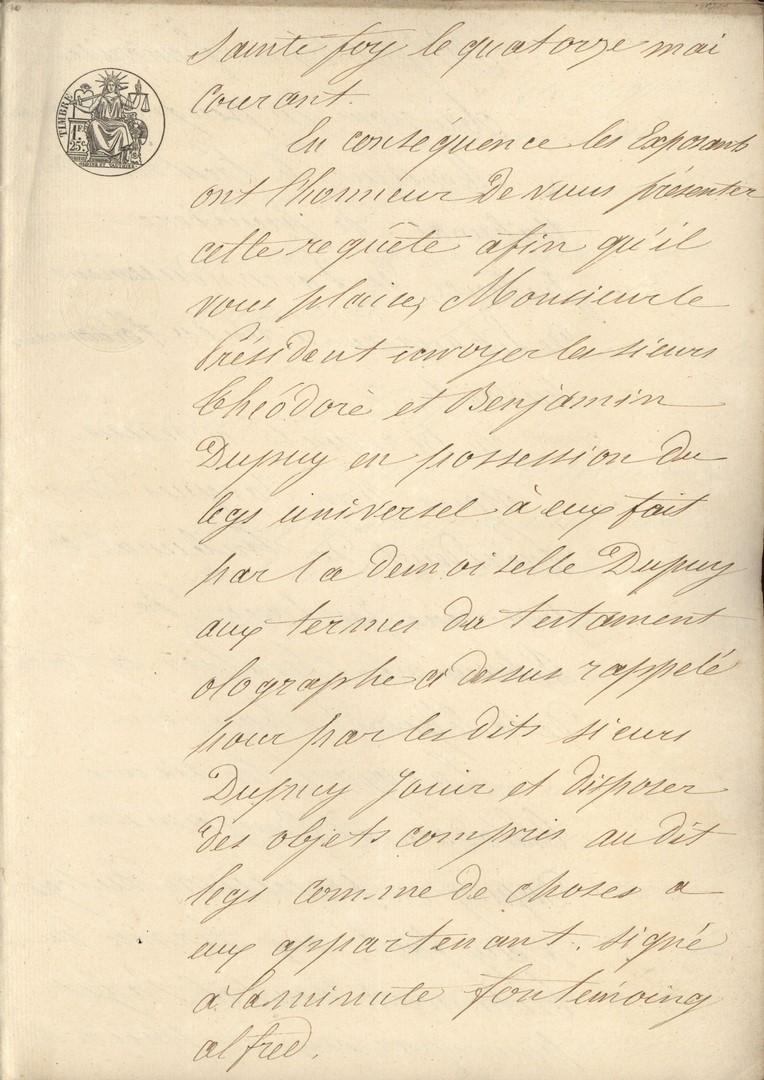 TIMBRE
1F
25c
Sainte foy le quatorze mai
Courant.
En conséquence les Exposants
ont l'honneur De vous présenter
cette requête afin qu'il
vous plaise, Monsieur le
Président envoyer les sieurs
Théodore et Benjamin
Dupuy en possession du
legs universel à eux fait
par la demoiselle Dupuy
aux termes du testament
olographe ci dessus rappelé
pour par les dits sieurs
Dupuy Jouir et disposer
Des objets compris au dit
legs comme de choses a
eux appartenant. signé
à la minute fontémoing
alfred.